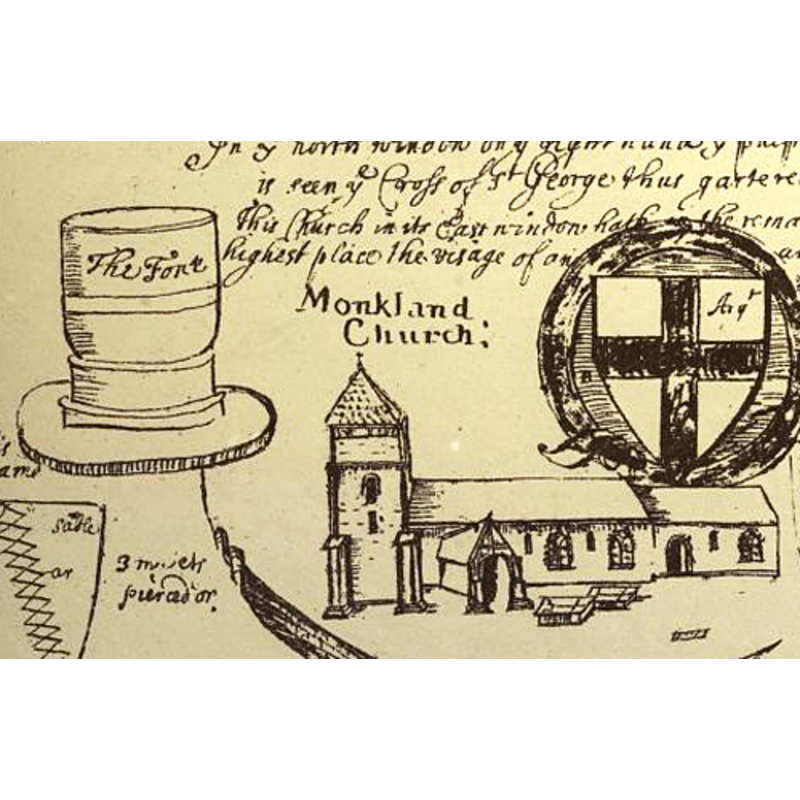 In yͤ north window on yͤ right hand yͤ
is seen yͤ Cross of Sᵗ George thus gartered
This Church in its East window hath the rema
highest place the visage of an
The Font
Monkland
Church:
Argᵗ
sable
ar
3 mulets
pierced or.